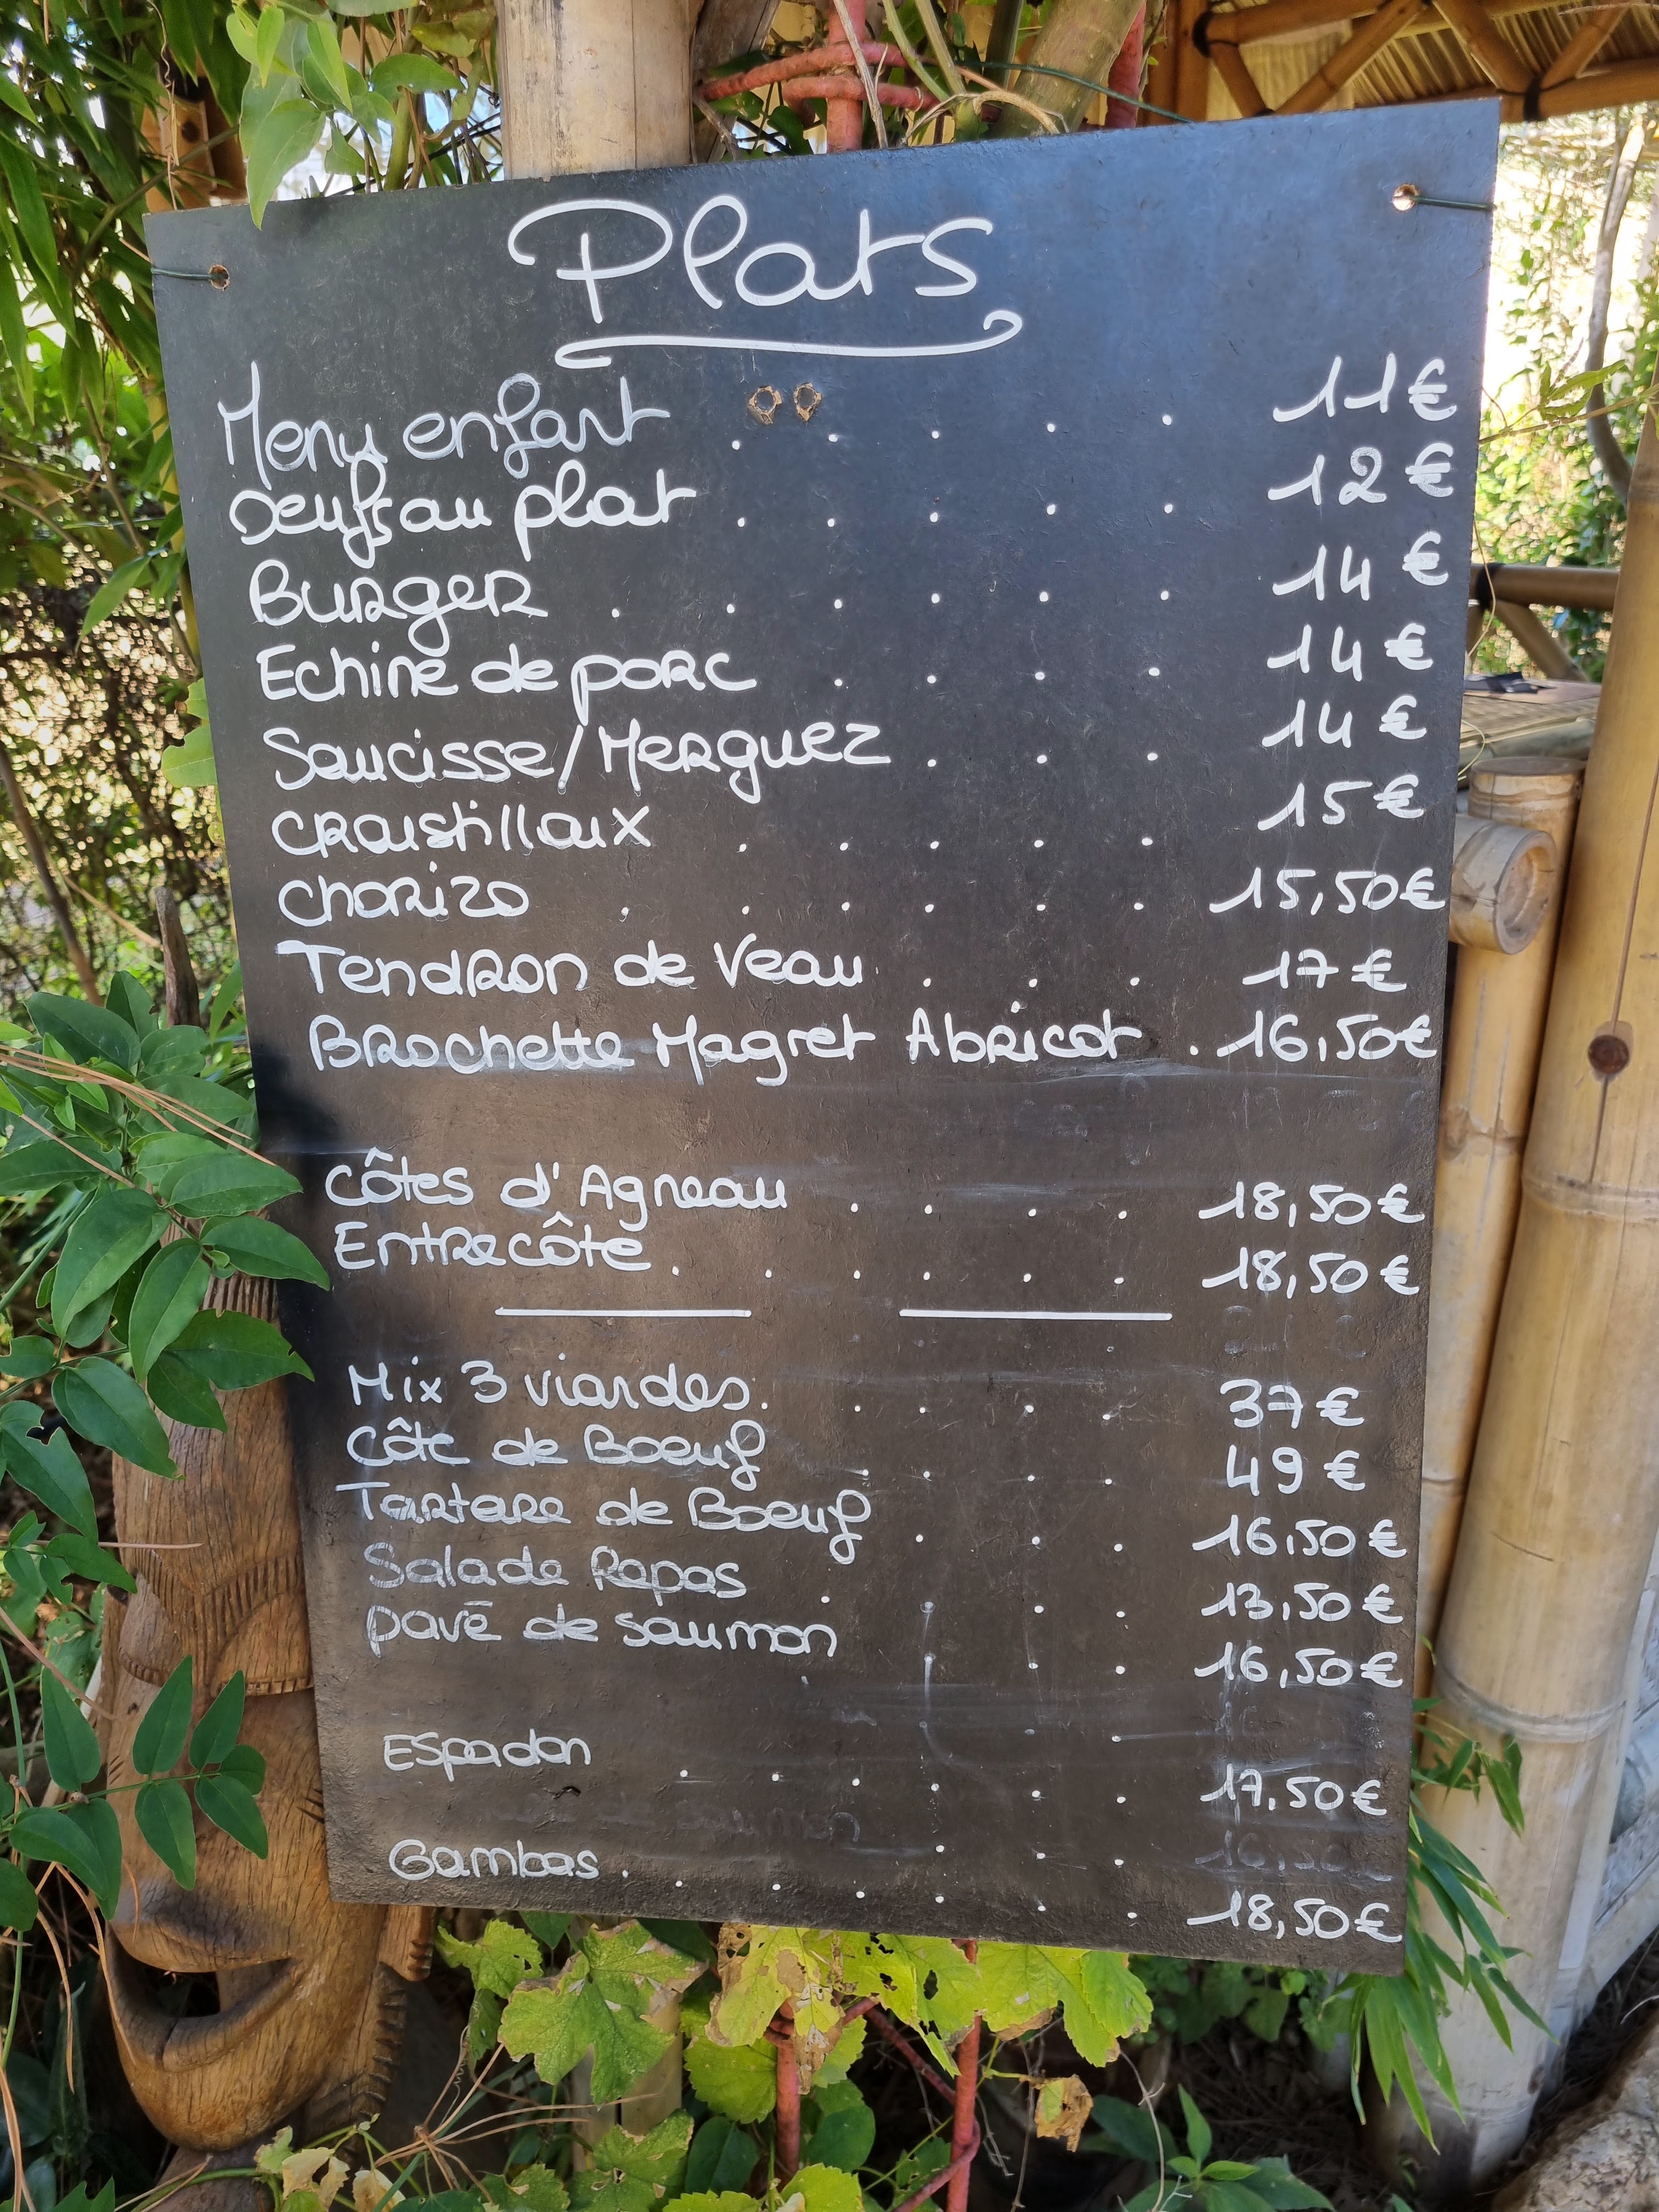 Plats
Menu enfant . . . . . 11€
Oeufs au plat . . . . . 12€
Burger . . . . . . 14€
Echine de porc . . . . 14€
Saucisse/Merguez . . . 14€
Croustillaux . . . . . 15€
Chorizo . . . . . . 15,50€
Tendron de Veau . . . 17€
Brochette Magret Abricot . 16,50€
Côtes d'Agneau . . . . 18,50€
Entrecôte . . . . . . 18,50€
Mix 3 viandes . . . . . 37€
Côte de Boeuf . . . . 49€
Tartare de Boeuf . . . 16,50€
Salade Repas . . . . 13,50€
pavé de saumon . . . 16,50€
Espadon . . . . . . 17,50€
saumon
Gambas . . . . . . . 18,50€